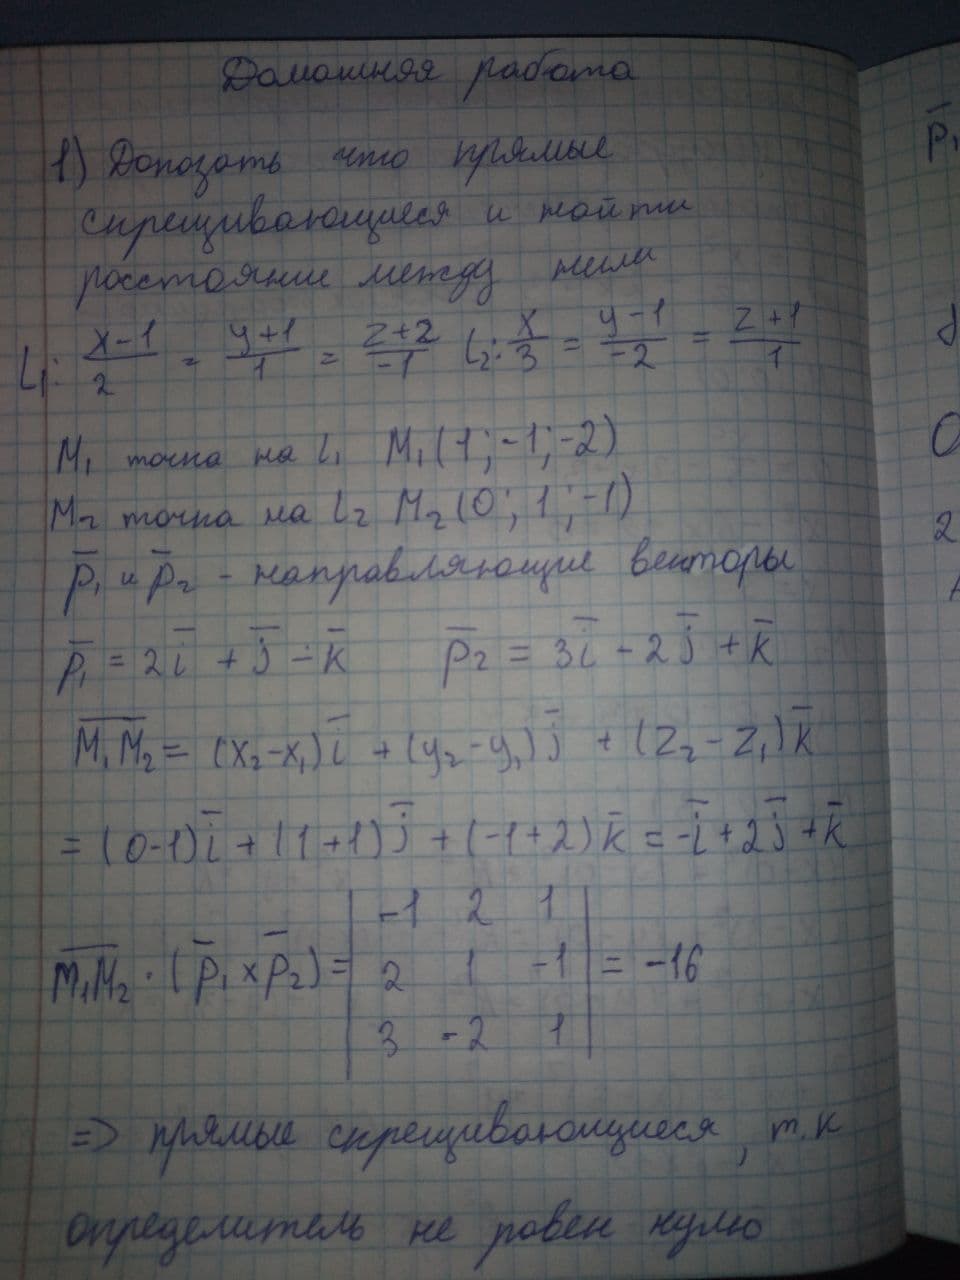 Домашняя работа
1) Доказать что прямые
скрещивающиеся и найти
расстояние между ними
L₁: (x-1)/2 = (y+1)/1 = (z+2)/-1 L₂: x/3 = (y-1)/-2 = (z+1)/1
M₁ точка на L₁ M₁(1;-1;-2)
M₂ точка на L₂ M₂(0;1;-1)
p̅₁ и p̅₂ - направляющие векторы
p̅₁ = 2i̅ + j̅ - k̅ p̅₂ = 3i̅ - 2j̅ + k̅
M̅₁M̅₂ = (x₂-x₁)i̅ + (y₂-y₁)j̅ + (z₂-z₁)k̅
= (0-1)i̅ + (1+1)j̅ + (-1+2)k̅ = -i̅ + 2j̅ + k̅
-1 2 1
M̅₁M̅₂ · (p̅₁ × p̅₂) = | 2 1 -1 | = -16
3 -2 1
=> прямые скрещивающиеся, т.к
определитель не равен нулю
p̅₁
2